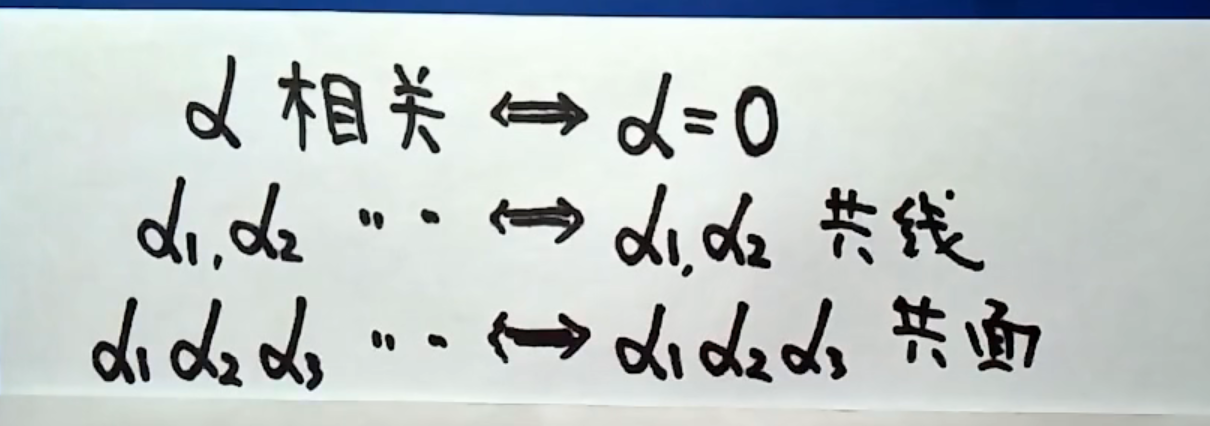 α 相关 ⟺ α=0
α₁,α₂ 〃 〃 ⟺ α₁,α₂ 共线
α₁ α₂ α₃ 〃 〃 ⟺ α₁ α₂ α₃ 共面